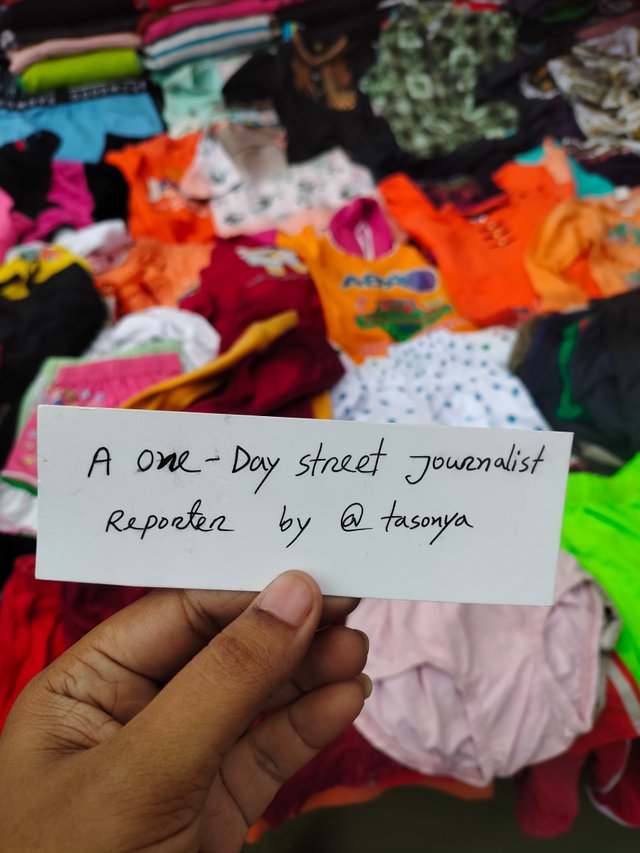 A one-Day street Journalist
Reporter by @tasonya